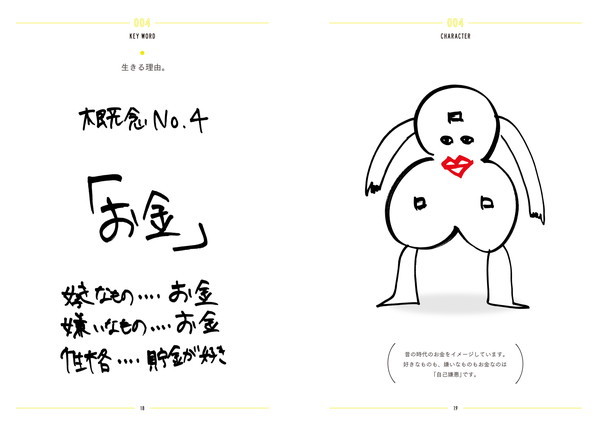 004
KEY WORD
生きる理由。
概念No.4
「お金」
好きなもの‥‥お金
嫌いなもの‥‥お金
性格‥‥貯金が好き
18
004
CHARACTER
昔の時代のお金をイメージしています。
好きなものも、嫌いなものもお金なのは
「自己嫌悪」です。
19